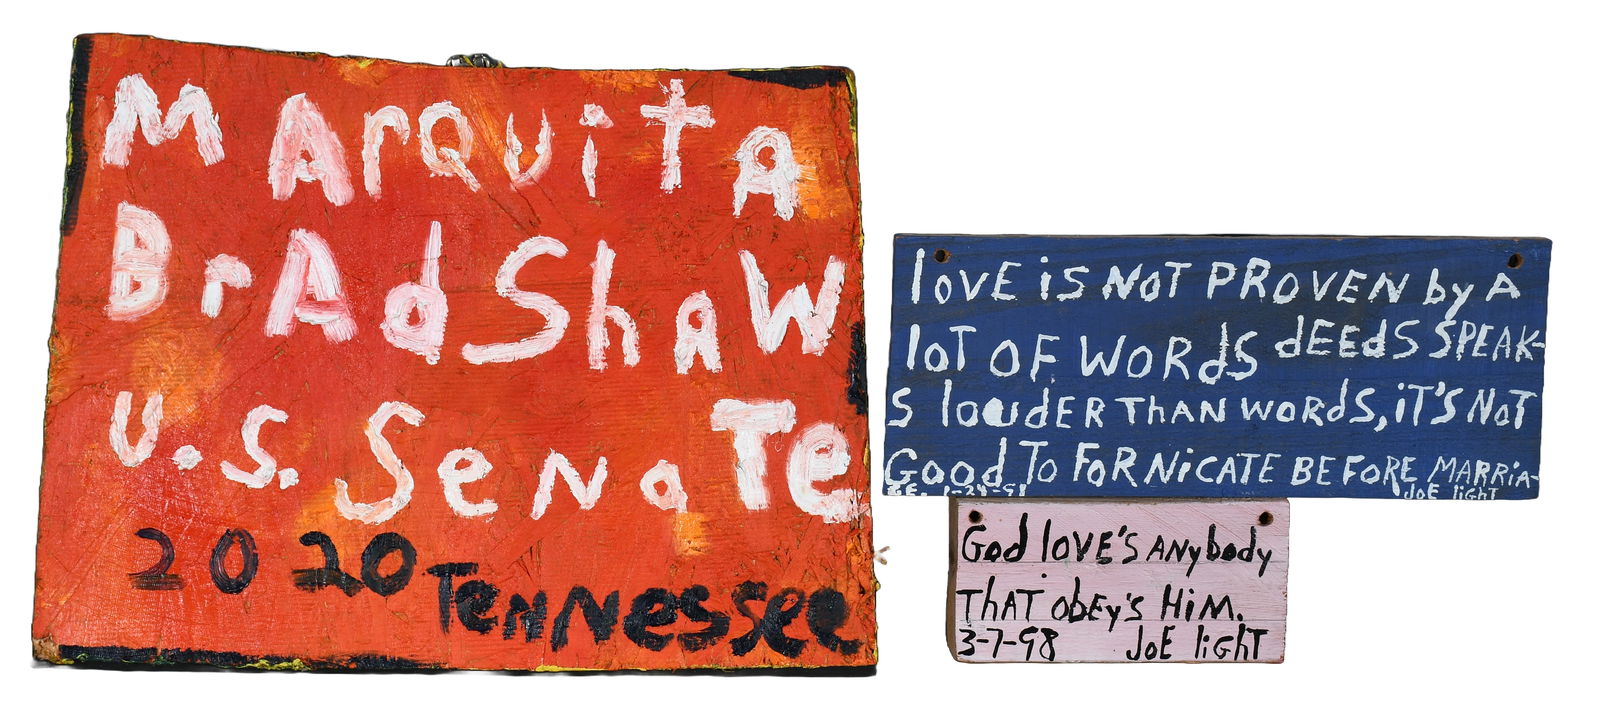 MArQuiTa
BrAdShaW
U.S. SenaTe
2020 Tennessee
lovE is NOT PROVEN by A
loT OF WORdS dEEdS SPEAK-
S loudER ThAN WORdS, iT'S NoT
Good To FoRNiCATE BEFORE MARRiA-
GE. 1-24-98 JoE lighT
God lovE'S ANybody
ThAT obEy'S HiM.
3-7-98 JoE lighT